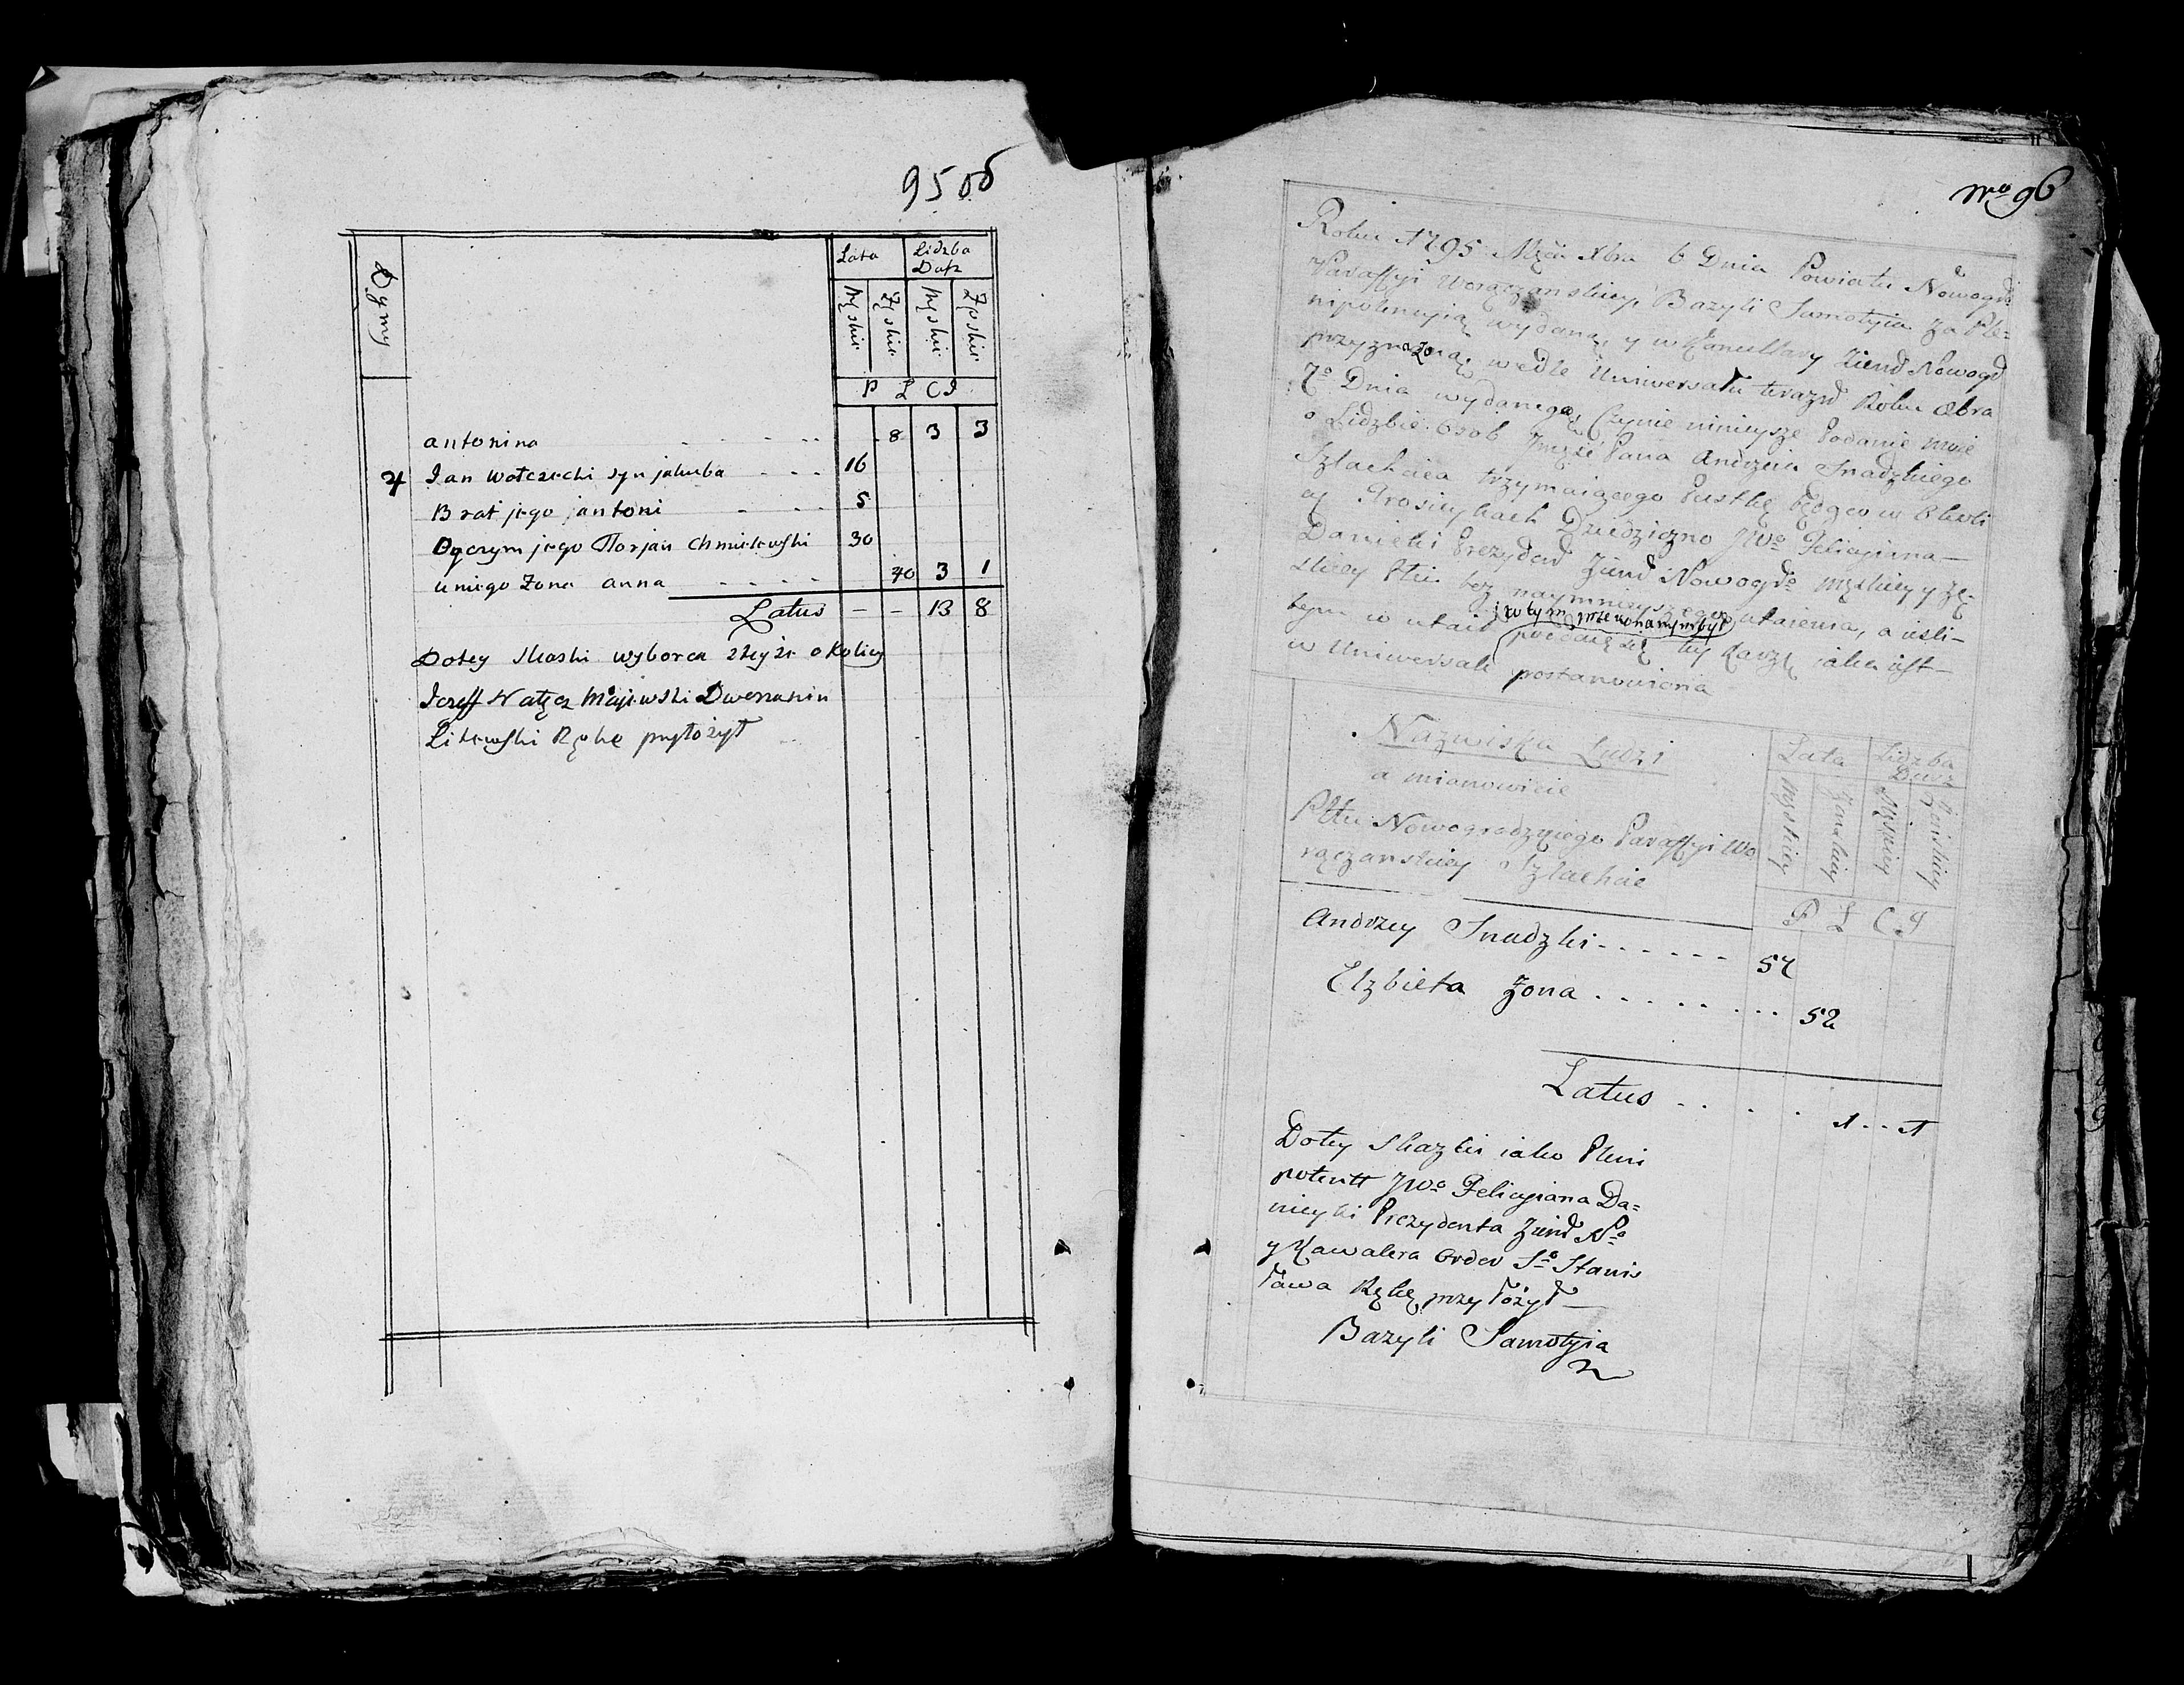 95 об
Dymy
Lata Lidzba Dusz
Męskie Żęskie Męskie Żęskie
P L C I
antonina - - - - 8 3 3
4 Jan wołczecki syn jakuba - - - 16
Brat jego jantoni - - - 5
Oyczym jego Florjan Chmielewski 30
u niego Żona anna - - - - 40 3 1
Latus - - 13 8
Dotey skaski wyborca zteyże okolicy
Jozeff Nałęcz Majewski Dwerzanin
Litewski Rękę przyłożył
No 96
Roku 1795 Mzca Xbra 6 Dnia Powiatu Nowogd
Paraffyi Worączanskiey, Bazyli Samotyia za Ple=
nipotencyią wydaną, y w Kancellary Ziemd Nowogd
przyznaną, wedle Uniwersału terazd Roku 8bra
7o Dnia wydanego, Czynie ninieysze Podanie moie
o Lidzbie Osob Imście Pana Andrzeia Snadzkiego
Szlachcica trzymaiącego Pustkę będąco w
cy Prosiebach Dziedziczno JWo Felicyiana—
Daniełi Prezydend Ziemd Nowogdo męskiey y żę-
skiey Płci bez naymnieyszego utaienia, a iesli—
w tym przekonanym był
bym w utaie poddaię się tey karze iaka iest—
w Uniwersale postanowiona
Nazwiska Ludzi
a mianowicie
Pttu Nowogrodzkiego Paraffyi Wo
rączanskiey Szlachcic
Lata Lidzba Dusz
Męskiey Żenskiey Męskiey Żenskiey
P L C I
Andrzey Snadzki - - - - - - 57
Elzbieta Żona . . . . . . . . . 52
Latus . . . . 1 . . 1
Dotey Skazki iako Pleni
potentt JWo Felicyiana Da=
nieyki Prezydenta Ziemd No
y Kawalera Order So Stanis
ława Rękę przyłożył—
Bazyli Samotyia